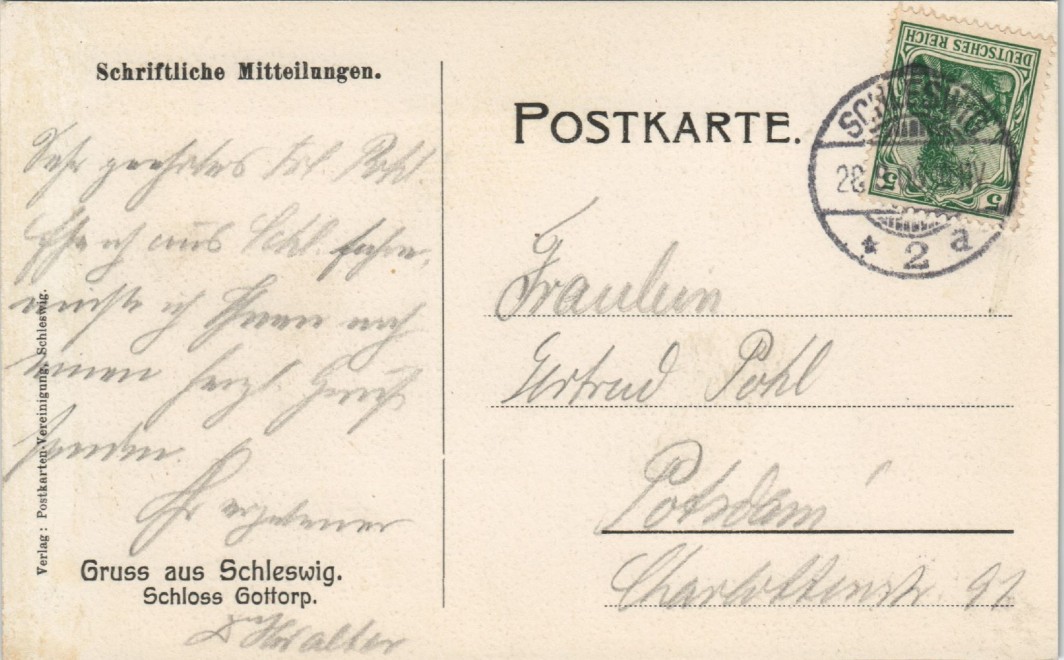 Schriftliche Mitteilungen.
Sehr geehrtes Frl. Pohl.
Ehe ich aus Schl. fahre,
möchte ich Ihnen noch
einen herzl. Gruß
senden.
Ihr ergebener
Walter
Gruss aus Schleswig.
Schloss Gottorp.
Verlag: Postkarten-Vereinigung, Schleswig.
POSTKARTE.
DEUTSCHES REICH
5
5
SCHLESWIG
* 2 a
Fräulein
Gertrud Pohl
Potsdam
Charlottenstr. 92